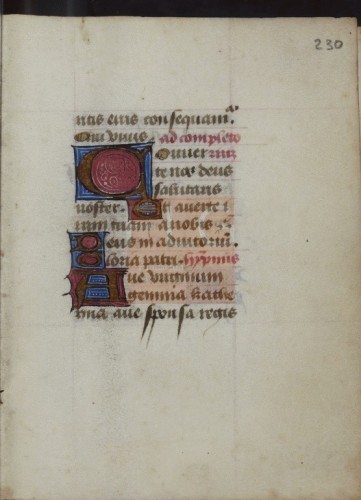 230
ntis eius consequamʳ.
Qui viuis. ad completo
Conuerte
te nos deus
salutaris
noster. Et auerte i
ram tuam a nobis
Deus in adiutoriū.
Gloria patri. hypmus
Aue virginum
gemma kathe
rina aue sponsa regis